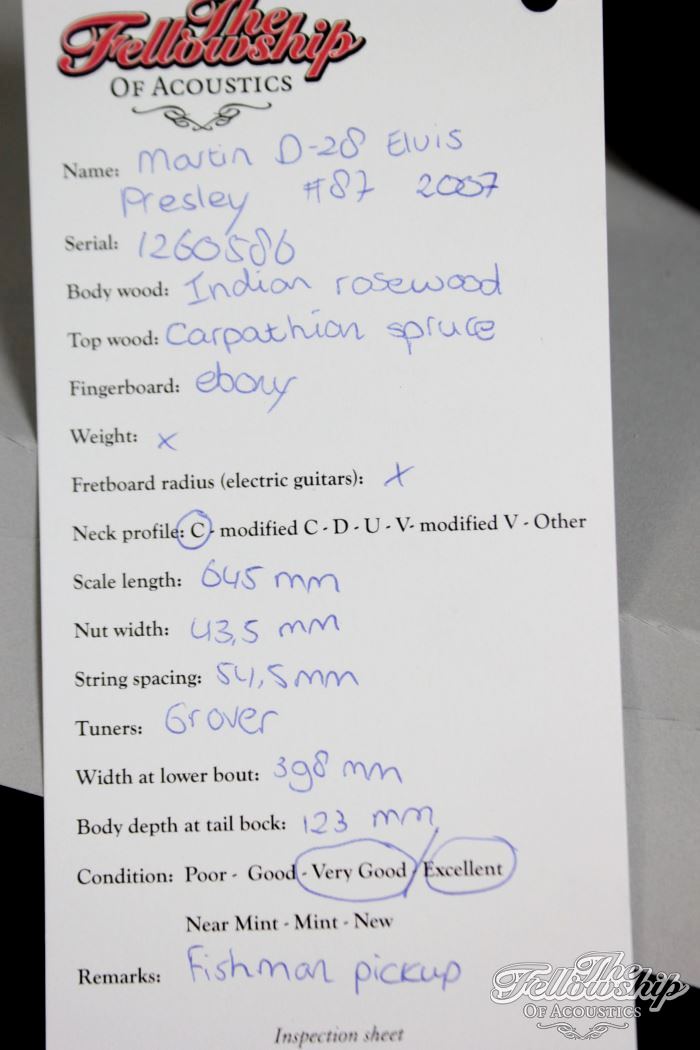 The
Fellowship
OF ACOUSTICS
Name: Martin D-28 Elvis
Presley #87 2007
Serial: 1260586
Body wood: Indian rosewood
Top wood: Carpathian spruce
Fingerboard: ebony
Weight: x
Fretboard radius (electric guitars): x
Neck profile: C - modified C - D - U - V- modified V - Other
Scale length: 645 mm
Nut width: 43,5 mm
String spacing: 54,5 mm
Tuners: Grover
Width at lower bout: 398 mm
Body depth at tail bock: 123 mm
Condition: Poor - Good - Very Good / Excellent
Near Mint - Mint - New
Remarks: Fishman pickup
Inspection sheet
The
Fellowship
OF ACOUSTICS